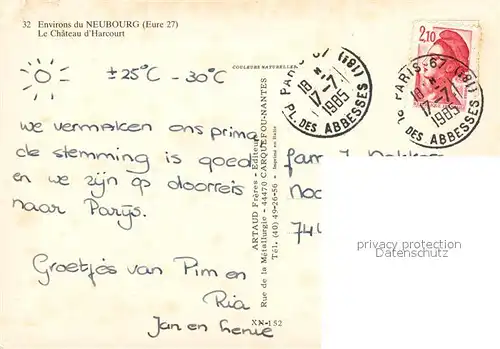 32 Environs du NEUBOURG (Eure 27)
Le Château d'Harcourt
COULEURS NATURELLES
± 25°C - 30°C
we vermaken ons prima
de stemming is goed
en we zijn op doorreis
naar Parijs.
Groetjes van Pim en
Ria
Jan en
ARTAUD Frères - Editeurs
Rue de la Métallurgie - 44470 CARQUEFOU-NANTES
Tél. (40) 49-26-56 - Imprimé en Italie
XN-152
2,10
PARIS-67 (18E)
18 H
17-7
1985
PL. DES ABBESSES
PARIS-67 (18E)
18 H
17-7
1985
PL. DES ABBESSES
fam
74
privacy protection
Datenschutz